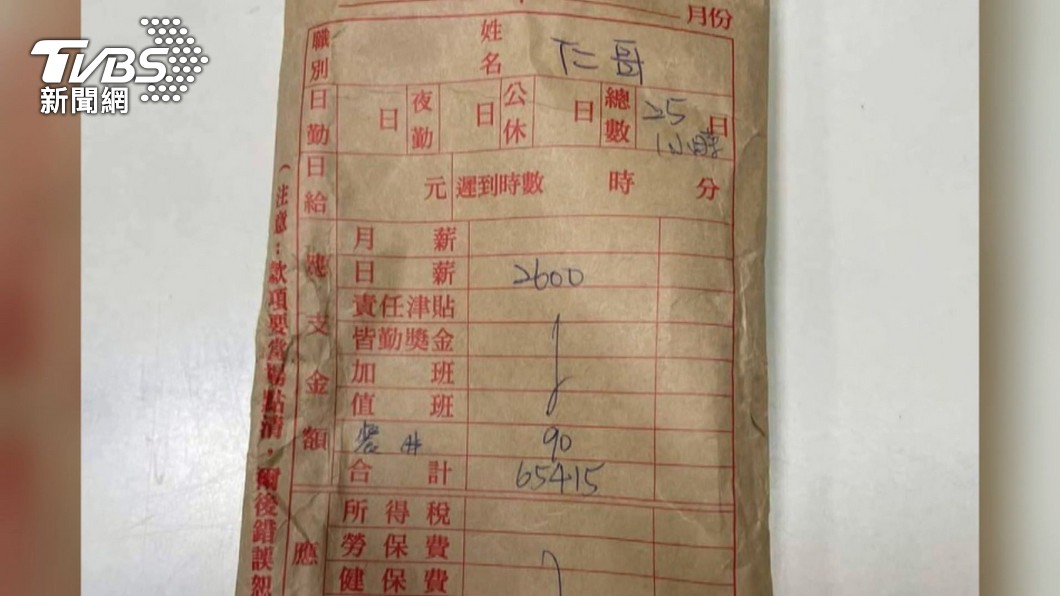 TVBS
新聞網
月份
職別 姓名 仁哥
日勤 日 夜勤 日 公休 日 總數 25 日
1小時
日給 元 遲到時數 時 分
應支金額
月薪
日薪 2600
責任津貼
皆勤獎金
加班
值班
90
合計 65415
應
所得稅
勞保費
健保費
(注意:款項要當場點清,爾後錯誤恕